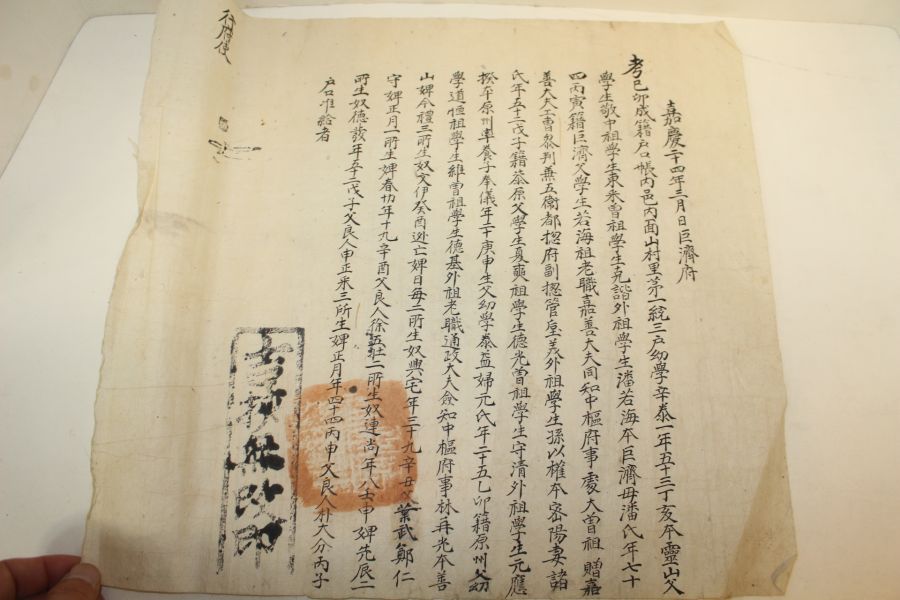 嘉慶二十四年三月日巨濟府
考己卯成籍戶口帳內邑內面山村里第一統三戶幼學辛泰一年五十三丁亥本靈山父
學生敬中祖學生東來曾祖學生克諧外祖學生潘若海本巨濟母潘氏年七十
四丙寅籍巨濟父學生若海祖老職嘉善大夫同知中樞府事處大曾祖贈嘉
善大夫工曺參判兼五衛都摠府副摠管 義外祖學生孫以權本密陽妻諸
氏年五十二戊子籍柒原父學生夏奭祖學生德光曾祖學生守清外祖學生元應
揆本原州率養子奉儀年二十庚申生父幼學泰益婦元氏年二十五乙卯籍原州父幼
學道恒祖學生維 曾祖學生德基外祖老職通政大夫僉知中樞府事林再光本善
山婢今禮三所生奴文伊癸酉逃亡婢日每二所生奴興宅年三十九辛丑父業武鄭仁
守婢正月一所生婢春切年十九辛酉父良人徐五壯二所生奴連尚年八壬申婢先辰二
所生奴德 年五十二戊子父良人申正采三所生婢正月年四十四丙申父良人朴大分丙子
戶口准給者
行府使